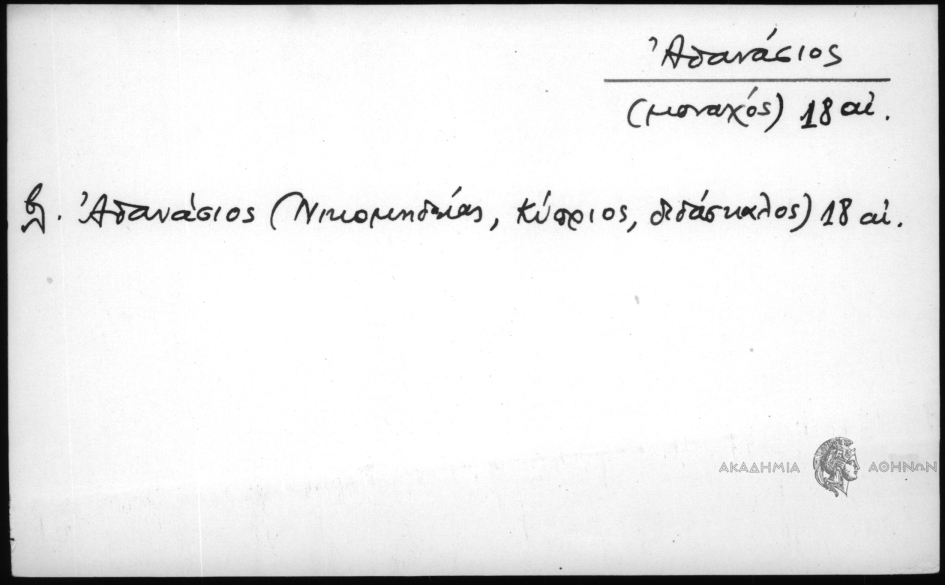 Ἀθανάσιος
(μοναχός) 18 αἰ.
βλ. Ἀθανάσιος (Νικομηδείας, Κύπριος, διδάσκαλος) 18 αἰ.
ΑΚΑΔΗΜΙΑ ΑΘΗΝΩΝ